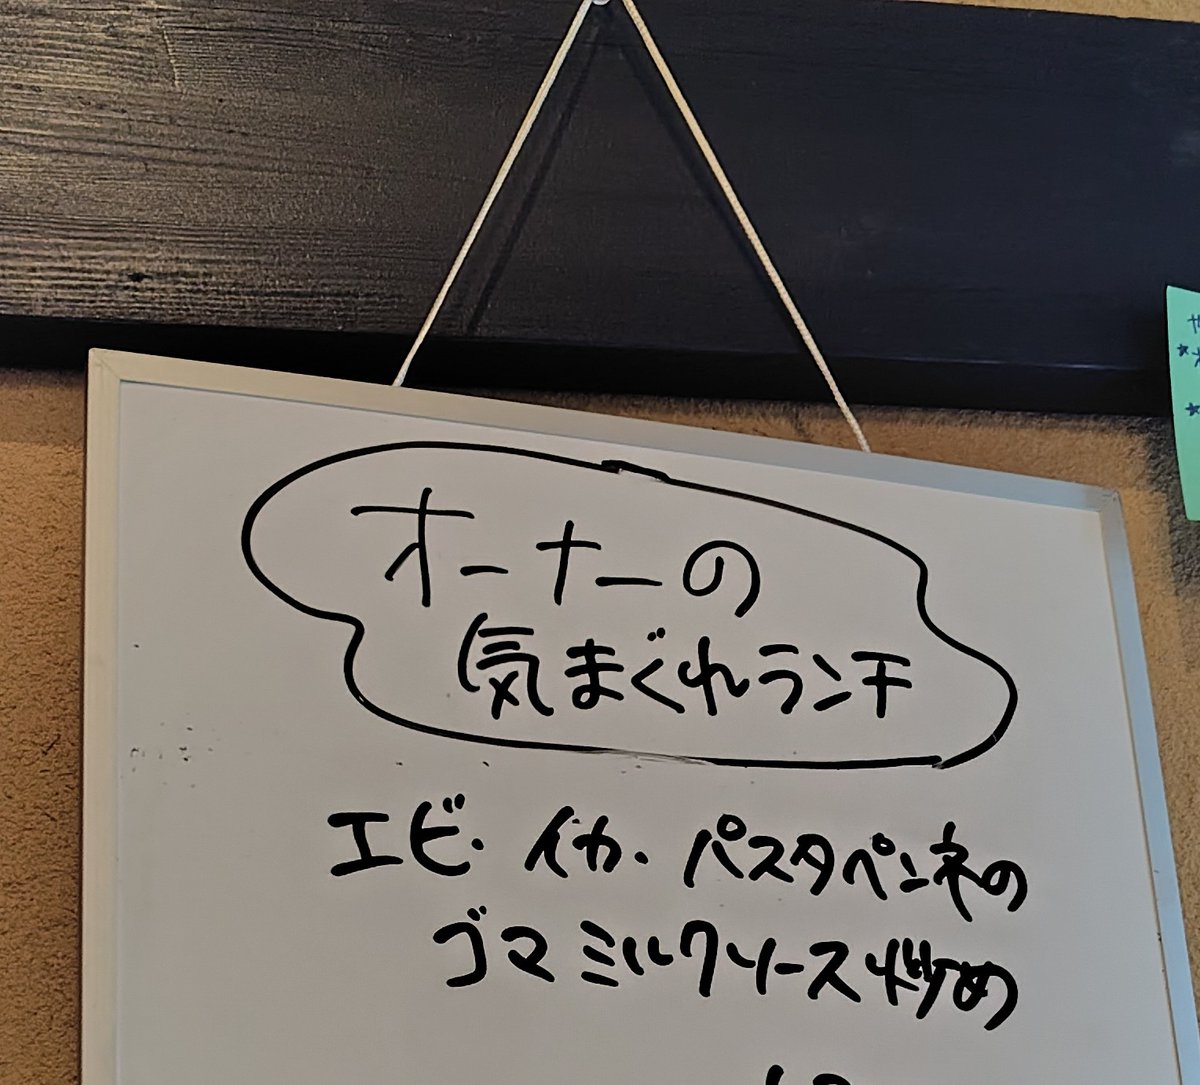 オーナーの
気まぐれランチ
エビ・イカ・パスタペンネの
ゴマミルクソース炒め